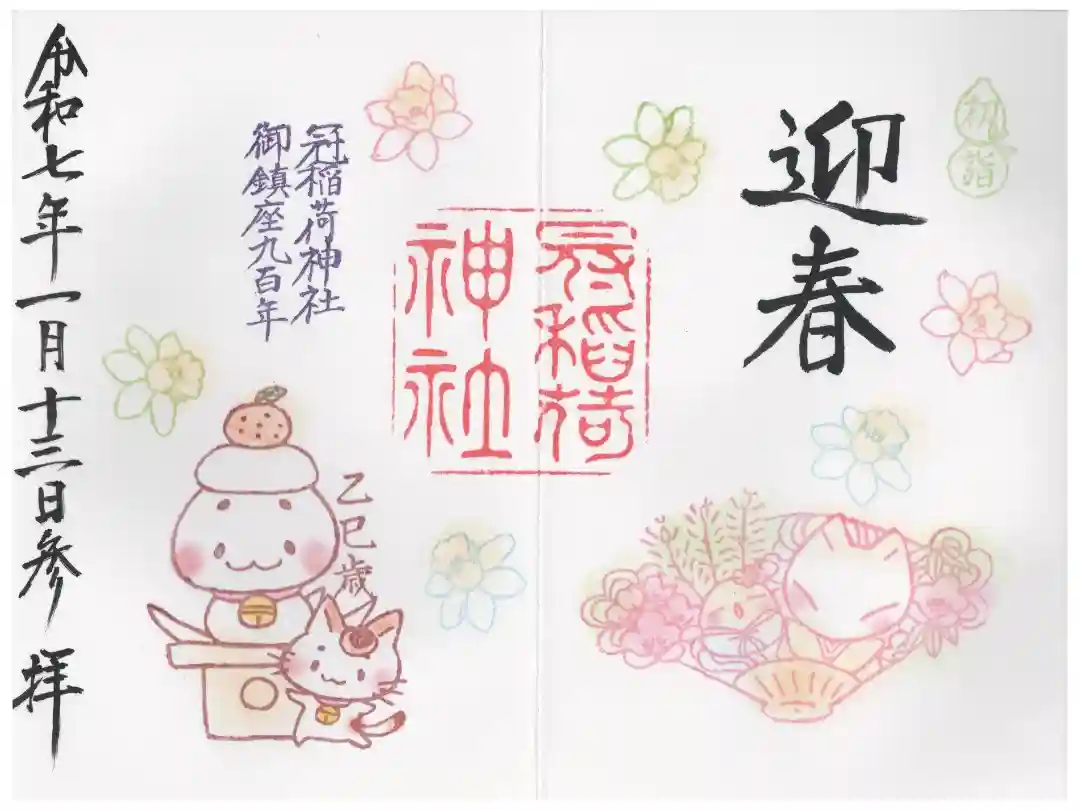 初詣
迎春
冠稲荷
神社
冠稲荷神社
御鎮座九百年
乙巳歳
令和七年一月十三日参拝